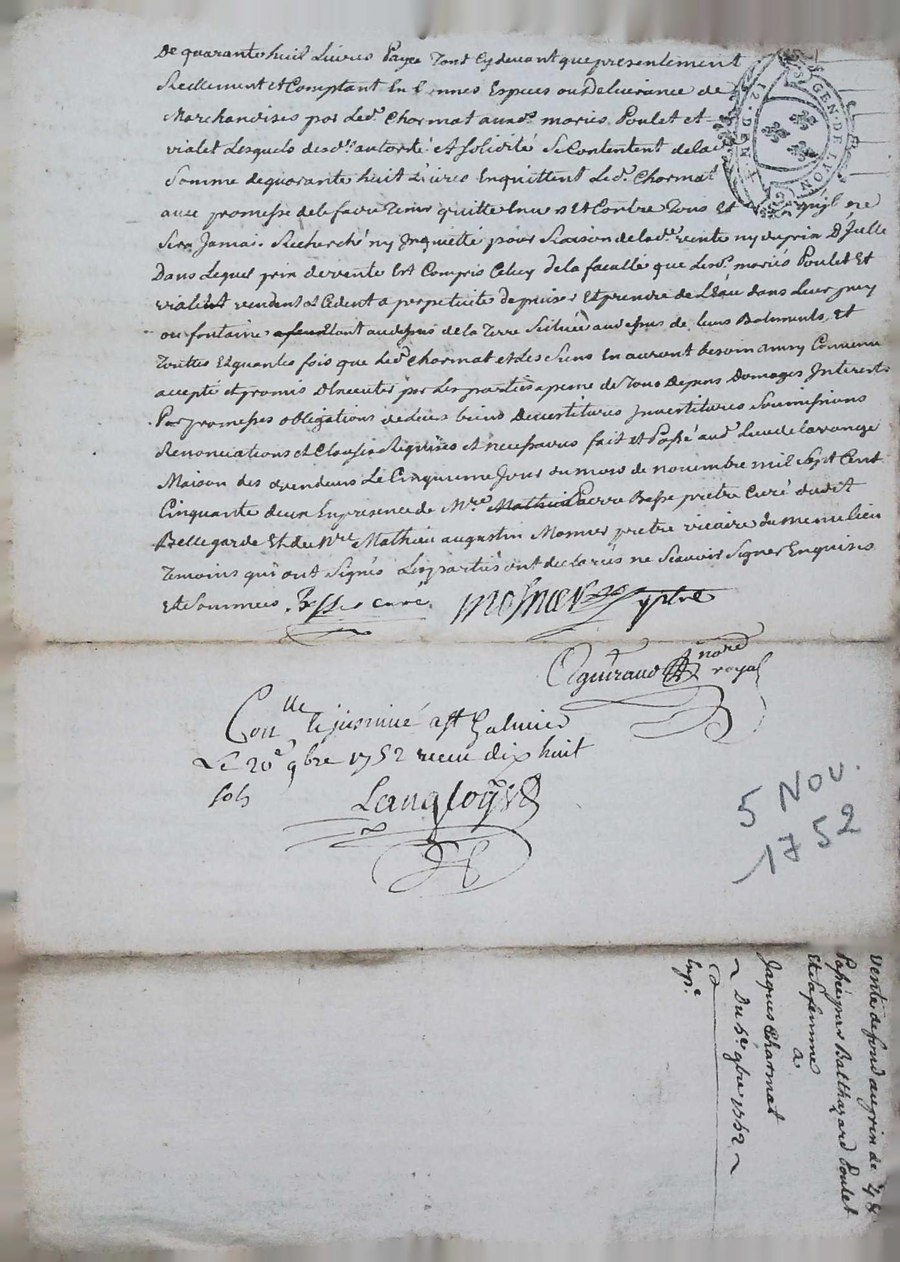 De quarante huit Livres Payée Tant Cy devant que presentement
Reellement et Comptant En bonnes Especes ou Deliverance de
Marchandises par Led. Charmat auxd. mariés Poulet et
vialet Lesquels desd. autorité et Solidité Se Contentent de lad.
Somme de quarante huit Livres Enquittent Led. Charmat
avec promesse de le faire Tenir quitte Envers Et Contre Tous Et qu'il ne
Sera Jamais Recherché ny Inquietté pour Raison de lad. vente ny du prix D'Icelle
Dans Lequel prix de vente Est Compris Celuy de la faculté que Lesd. mariés Poulet Et
vialet vendent et Cedent a perpetuité de puiser Et prendre de L'Eau dans Leur puy
ou fontaine estant au dessus de la Terre Scituée au dessus de leurs Batiments, et
Toutes Et quantes fois que Led. Charmat et Les Siens En auront besoin ainsy Convenu
accepté et promis D'Executer par Les parties a peine de Tous Depens Domages Interets
Par promesses obligations de leurs biens Devestitures Investitures Soumissions
Renonciations et Clauses Requises et necessaires fait et Passé aud. Lieu de
Maison des vendeurs Le Cinquieme Jour du mois de novembre mil Sept Cent
Cinquante deux En presence de Mre. Pierre Besse pretre Curé dudit
Bellegarde Et du Mre Mathieu augustin Mosnier pretre vicaire du meme lieu
Temoins qui ont Signés Les parties ont declarés ne Scavoir Signer Enquises
Et Sommées. Besse curé. mosnier ptre
Aguiraud nore royal
Conlle a St Galmier
Le 20e 9bre 1752 receu dix huit
sols Langloys
5 Nov.
1752
GEN. DE LYON
12. DEN
Vente de fond au prix de 48
Passé par Balthazard Poulet
Et Sa femme
a
Jaques Charmat
~ Du 5e 9bre 1752 ~
Exp.e